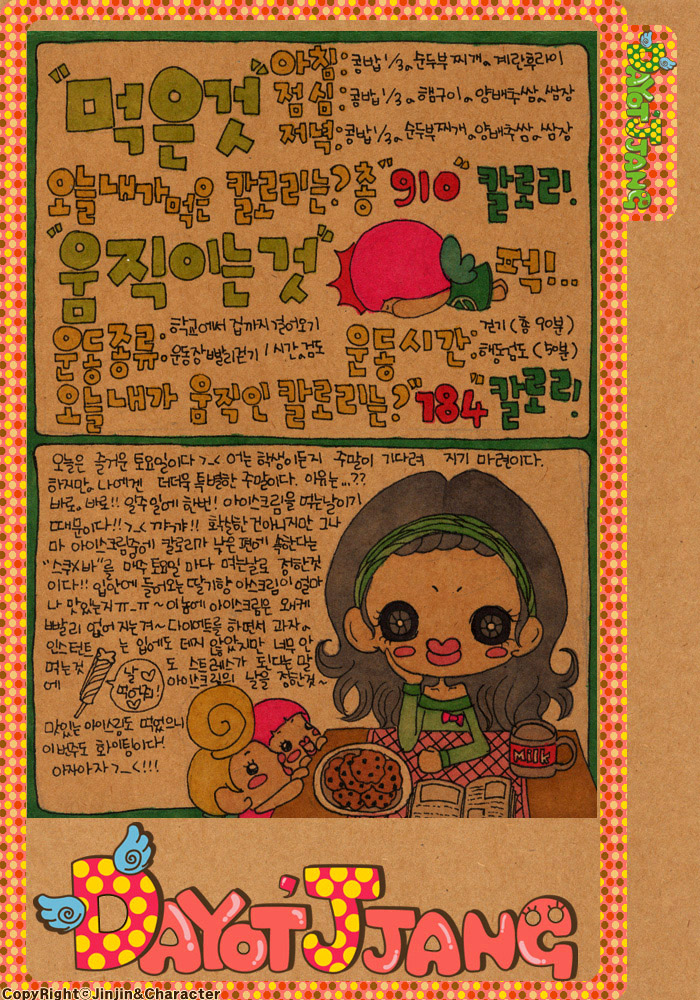 "먹은것"
아침: 콩밥 1/3。순두부찌개。계란후라이
점심: 콩밥 1/3。햄구이。양배추쌈。쌈장
저녁: 콩밥 1/3。순두부찌개。양배추쌈。쌈장
오늘 내가 먹은 칼로리는? 총 "910" 칼로리!
"움직이는것"
퍽!...
운동종류: 학교에서 집까지 걸어오기
운동장 빨리걷기 1시간。검도
운동시간: 걷기 (총 90분)
해동검도 (50분)
오늘 내가 움직인 칼로리는? "784" 칼로리!
오늘은 즐거운 토요일이다 >_< 어느 학생이든지 주말이 기다려 지기 마련이다.
하지만。나에겐 더더욱 특별한 주말이다. 이유는...??
바로。바로!! 일주일에 한번! 아이스크림을 먹는날이기
때문이다!! >_< 꺄꺄!! 확실한 건아니지만 그나
마 아이스크림중에 칼로리가 낮은 편에 속한다는
"스쿠x바"를 매주 토요일 마다 먹는날로 정한것
이다!! 입안에 들어오는 딸기향 아스크림이 얼마
나 맛있는지 ㅠ_ㅠ ~ 이놈에 아이스크림은 왜케
빨리 없어지는겨~ 다이어트를 하면서 과자。
인스턴트 는 입에도 데지 않았지만 너무 안
먹는것 도 스트레스가 된다는 말
에 아이스크림의 날을 정한것~
날 먹어줘!
맛있는 아이스킁도 먹었으니
이번주도 화이팅이다!
아자아자 >_<!!!
Milk
DAYOT'JJANG
DAYOT'JJANG
CopyRight©Jinjin&Character